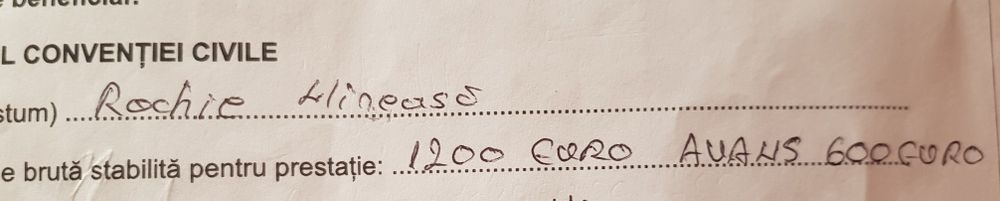 beneficiar.
L CONVENȚIEI CIVILE
stum) Rochie Mireasă
e brută stabilită pentru prestație: 1200 EURO AVANS 600 EURO